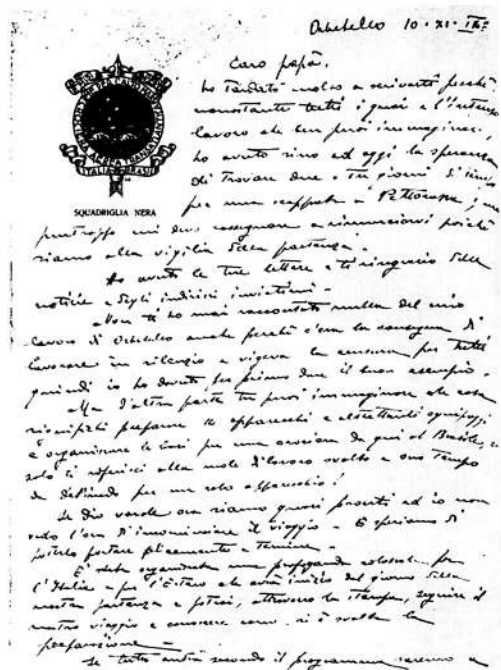 Orbetello 10 · XI · IX°
Caro papà,
ho tardato molto a scriverti perché
nonostante tutti i guai e l'intenso
lavoro che ben puoi immaginare,
ho avuto sino ad oggi la speranza
di trovare due o tre giorni di
per una scappata a Pettorazza;
SQUADRIGLIA NERA
purtroppo mi devo rassegnare a rinunciarvi poiché
siamo alla vigilia della partenza.
Ho avuto le tue lettere e ti ringrazio delle
notizie e degli indirizzi inviatimi.
Non ti ho mai raccontato nulla del mio
lavoro di Orbetello anche perché c'era la consegna di
lavorare in silenzio e vigeva la censura per tutti
quindi io ho dovuto per primo dare il buon esempio.
Ma d'altra parte tu puoi immaginare che cosa
significhi preparare apparecchi e altrettanti equipaggi
e organizzare le basi per una crociera da qui al Brasile,
solo ti riferisci alla mole di lavoro svolto a suo tempo
da per un solo apparecchio!
Se Dio vuole ora siamo quasi pronti ed io non
vedo l'ora d'incominciare il viaggio. E speriamo di
poterlo portare felicemente a termine.
E' stata organizzata una propaganda colossale per
l'Italia e per l'Estero che avrà inizio dal giorno della
nostra partenza e potrai, attraverso la stampa, seguire il
nostro viaggio e conoscere come si è svolta la
preparazione.
Se tutto andrà secondo il programma saremo a